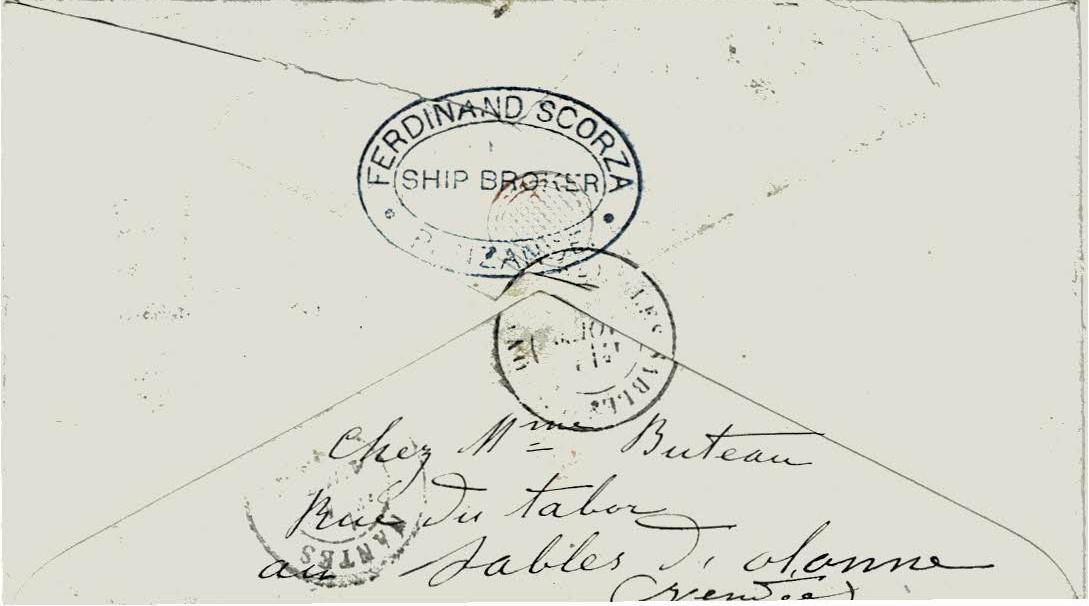 FERDINAND SCORZA
SHIP BROKER
PENZANCE
LES SABLES
Chez Mme Buteau
Rue du tabor
NANTES
au Sables d'olonne
(vendée)